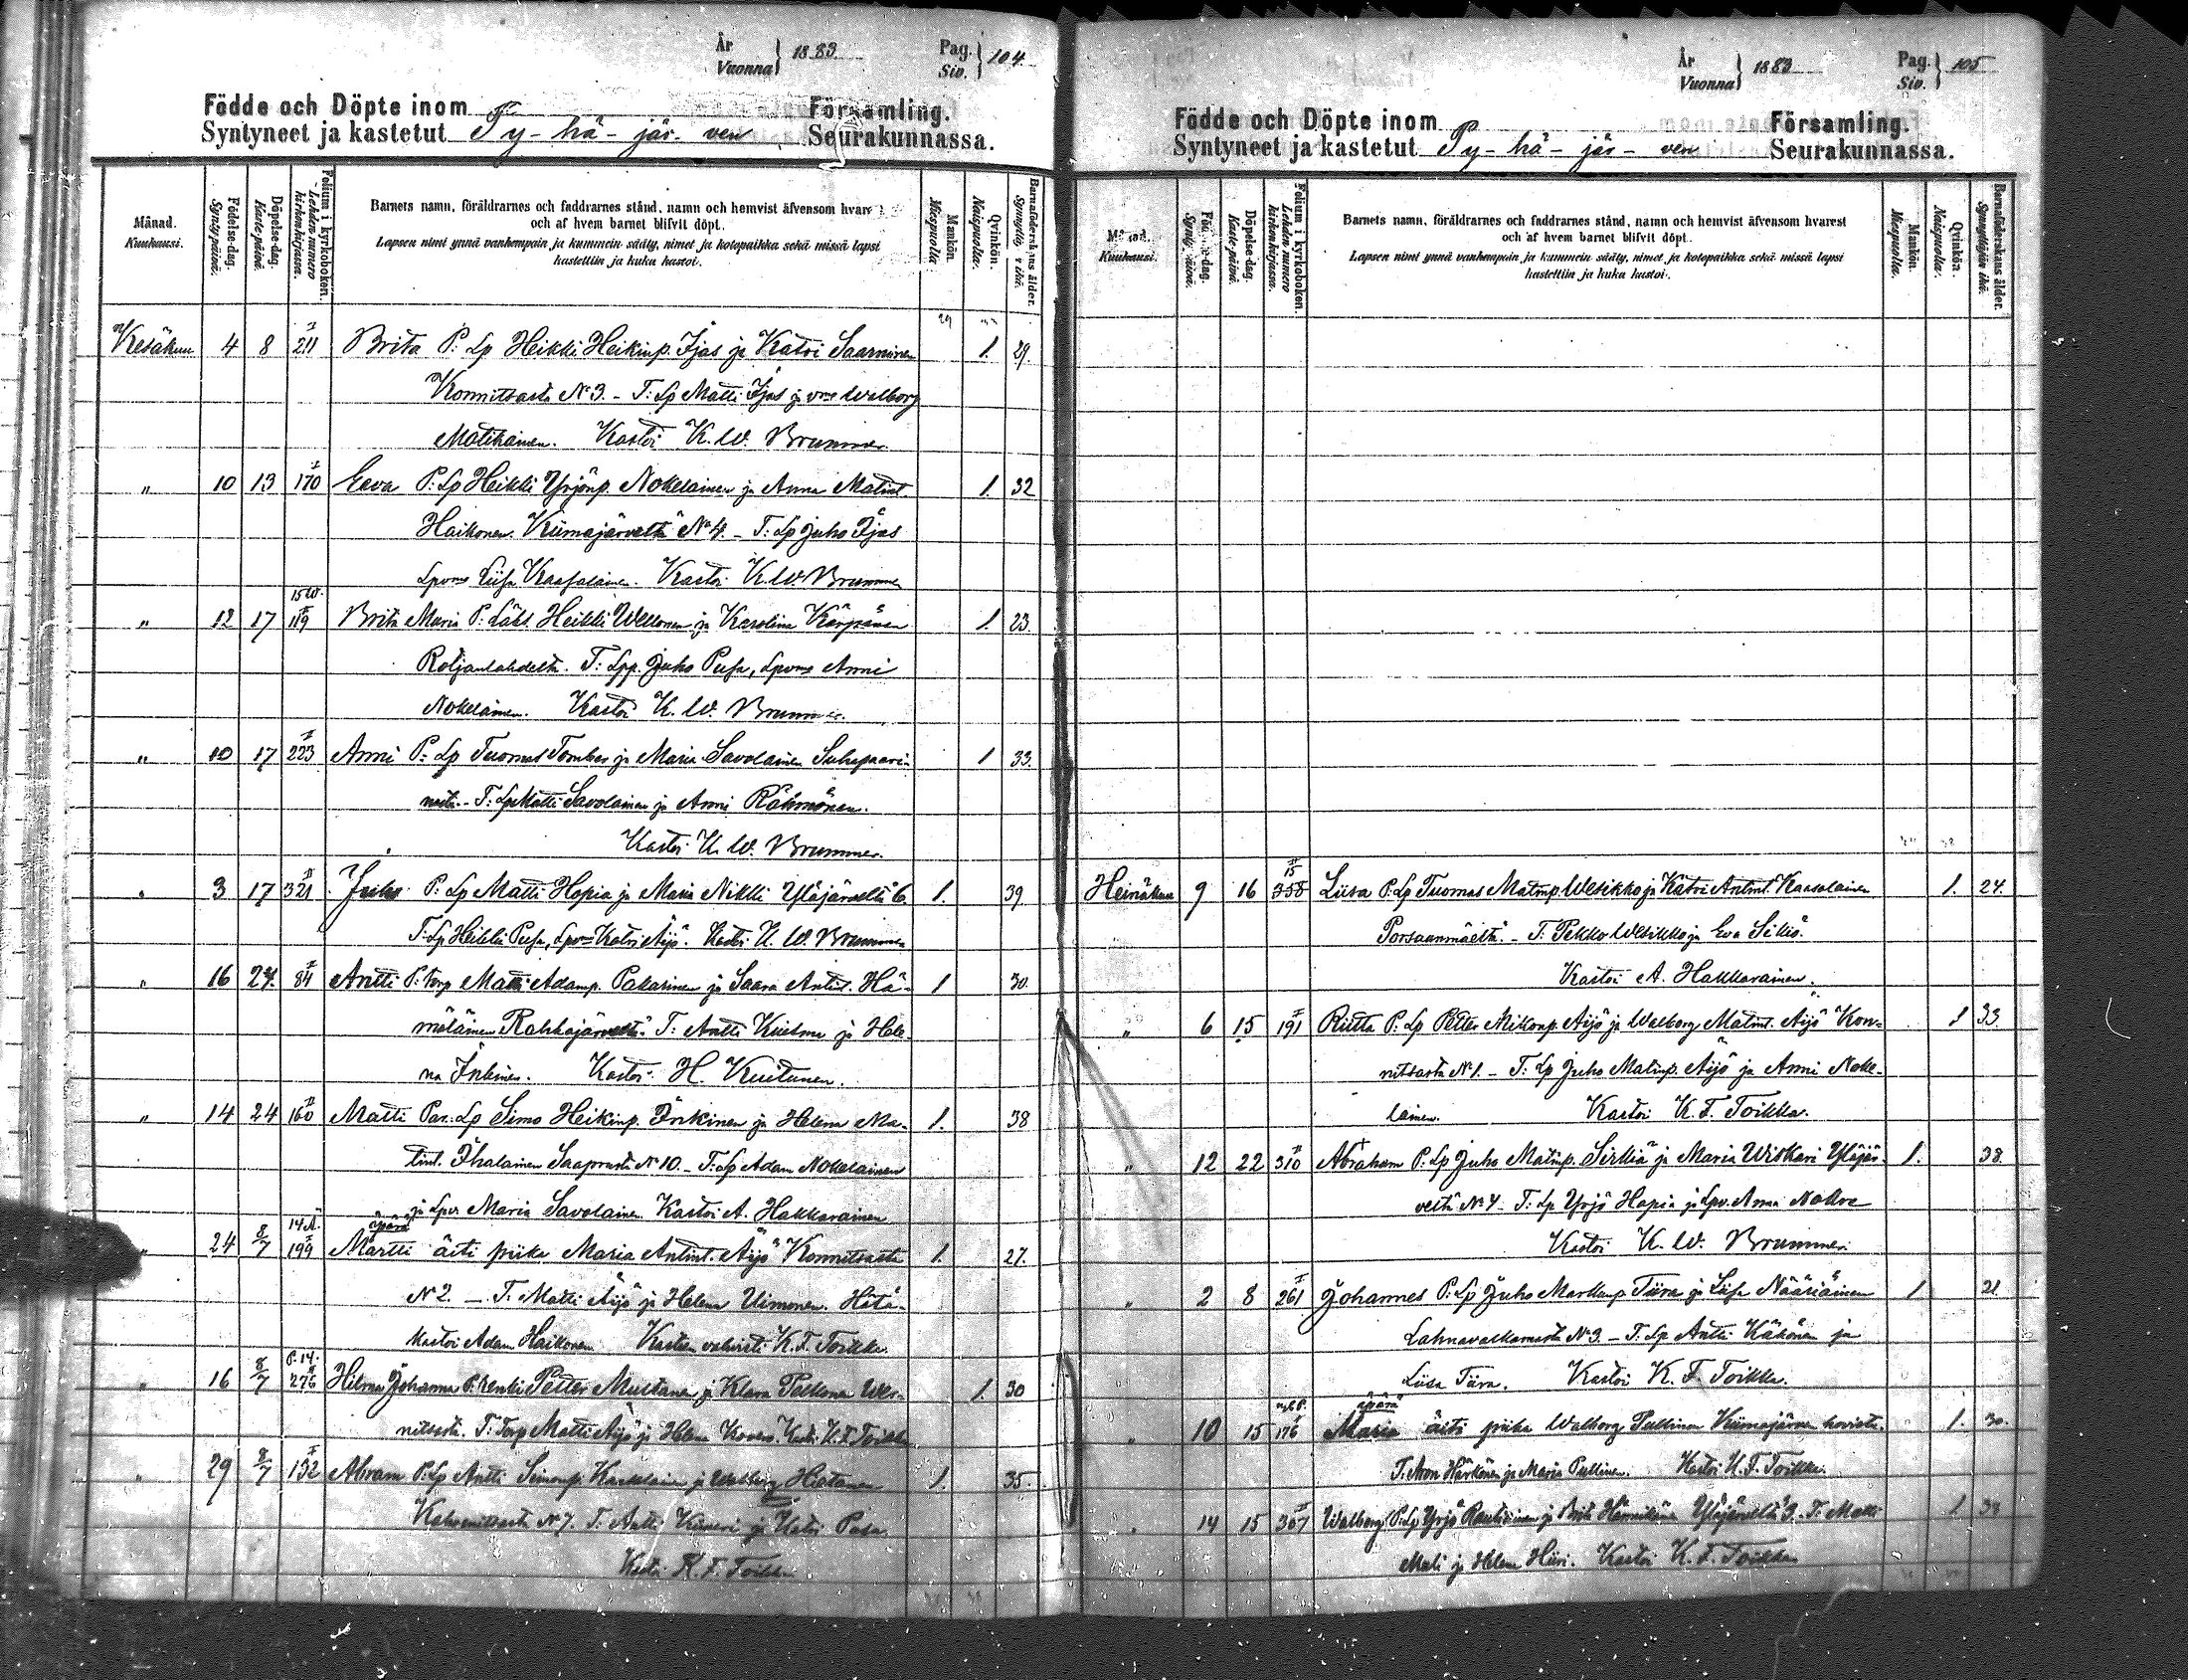 År
Vuonna } 1883
Pag.
Siv. } 104
Födde och Döpte inom Församling.
Syntyneet ja kastetut Py-hä-jär-ven Seurakunnassa.
Månad. Kuukausi.
Födelse-dag. Synty-päivä.
Döpelse-dag. Kaste-päivä.
Folium i kyrkoboken. Lehden numero kirkonkirjassa.
Barnets namn, föräldrarnes och faddrarnes stånd, namn och hemvist äfvensom hvarest
och af hvem barnet blifvit döpt.
Lapsen nimi ynnä vanhempain ja kummein sääty, nimet ja kotopaikka sekä missä lapsi
kastettiin ja kuka kastoi.
Mankön. Miespuolia.
Qvinkön. Naispuolia.
Barnaföderskans ålder. Synnyttäjän ikä.
Kesäkuu 4 8 I 211 Brita P: Lp Heikki Heikinp. Ijas ja Katri Saarninen 1. 29.
Konnitsasta No 3. - T: Lp Matti Ijas ja vmo Walborg
Matikainen. Kastoi K. W. Brummer.
" 10 13 I 170 Eeva P: Lp Heikki Yrjönp. Nokelainen ja Anna Matint 1. 32
Haikonen. Kiimajärveltä No 4. - T: Lp Juho Ijas
Lpvmo Liisa Kaasalainen. Kastoi K. W. Brummer
15 W.
" 12 17 II 119 Brita Maria P: Läks. Heikki Wellonen ja Karolina Kärpänen 1. 23.
Rotjanlahdelta. T: Lpp. Juho Pusa, Lpvmo Anni
Nokelainen. Kastoi K. W. Brummer.
" 10 17 I 223 Anni P: Lp Tuomas Tombas ja Maria Savolainen Suhapaari- 1 33.
T: Lp Matti Savolainen ja Anni Rähmönen.
Kastoi K. W. Brummer.
" 3 17 II 321 Juho P: Lp Matti Hopia ja Maria Nikki Yläjärveltä 6. 1. 39.
T: Lp Heikki Pusa, Lpvmo Katri Äijö. Kastoi K. W. Brummer
" 16 24. I 84 Antti P: torp Matti Adamp. Pakarinen ja Saara Antint. Hä- 1 30.
mäläinen Rahkajärveltä. T: Antti Kuisma ja Hele-
na Inkinen. Kastoi H. Kuitunen.
" 14 24 II 160 Matti Van: Lp Simo Heikinp. Inkinen ja Helena Ma- 1. 38
tint. Ihalainen Saaprusta No 10. - T: Lp Adam Nokelainen
ja Lpv Maria Savolainen. Kastoi A. Hakkarainen
14 Ä. äpärä
" 24 8/7 I 199 Martti äiti piika Maria Antint. Äijö Konnitsasta 1. 27.
No 2. - T. Matti Äijö ja Helena Uimonen. Hätä-
kastoi Adam Haikonen Kasteen vahvisti K. F. Toikka.
P. 14.
" 16 8/7 II 276 Hilma Johanna P: renki Petter Mustana ja Klara Pekkona Wer- 1. 30
nitsasta. T: Torp Matti Äijö ja Helena Kovero. Kastoi K. F. Toikka
" 29 8/7 I 132 Abram P: Lp Antti Simonp. Kaasalainen ja Walborg Hietanen 1. 35.
Kahvenitsasta No 7. T: Antti Kiiveri ja Katri Pusa.
Kastoi K. F. Toikka
År
Vuonna } 1883
Pag.
Siv. } 105
Födde och Döpte inom Församling.
Syntyneet ja kastetut Py-hä-jär-ven Seurakunnassa.
Månad. Kuukausi.
Födelse-dag. Synty-päivä.
Döpelse-dag. Kaste-päivä.
Folium i kyrkoboken. Lehden numero kirkonkirjassa.
Barnets namn, föräldrarnes och faddrarnes stånd, namn och hemvist äfvensom hvarest
och af hvem barnet blifvit döpt.
Lapsen nimi ynnä vanhempain ja kummein sääty, nimet ja kotopaikka sekä missä lapsi
kastettiin ja kuka kastoi.
Mankön. Miespuolia.
Qvinkön. Naispuolia.
Barnaföderskans ålder. Synnyttäjän ikä.
II 15
Heinäkuu 9 16 358 Liisa P: Lp Tuomas Matinp. Wesikko ja Katri Antint. Kaasalainen 1. 24.
Porsaanmäeltä. - T: Pekko Wesikko ja Eva Sikiö.
Kastoi A. Hakkarainen.
" 6 15 I 191 Riitta P: Lp Petter Mikonp. Äijö ja Walborg Matint. Äijö Kon- 1 33.
nitsasta No 1. - T: Lp Juho Matinp. Äijö ja Anni Noke-
lainen. Kastoi K. F. Toikka.
" 12 22 II 310 Abraham P: Lp Juho Matinp. Sirkiä ja Maria Wiskari Yläjär- 1. 38.
veltä No 4 - T: Lp Yrjö Hopia ja Lpv. Anna Nokva
Kastoi K. W. Brummer.
" 2 8 I 261 Johannes P: Lp Juho Markunp. Tiira ja Liisa Nääriäinen 1 21.
Lahnavalkamasta No 3. - T: Lp Antti Käkönen ja
Liisa Tiira. Kastoi K. F. Toikka.
äpärä
" 10 15 I 176 Maria äiti piika Walborg Pullinen Kiimajärven hovista. 1. 30.
T: Aron Härkönen ja Maria Pullinen. Kastoi K. F. Toikka.
" 14 15 II 307 Walborg P: Lp Yrjö Rautiainen ja Brita Hännikäinen Yläjärveltä 3. T: Matti 1 38
Mali ja Helena Hiiri. Kastoi K. F. Toikka